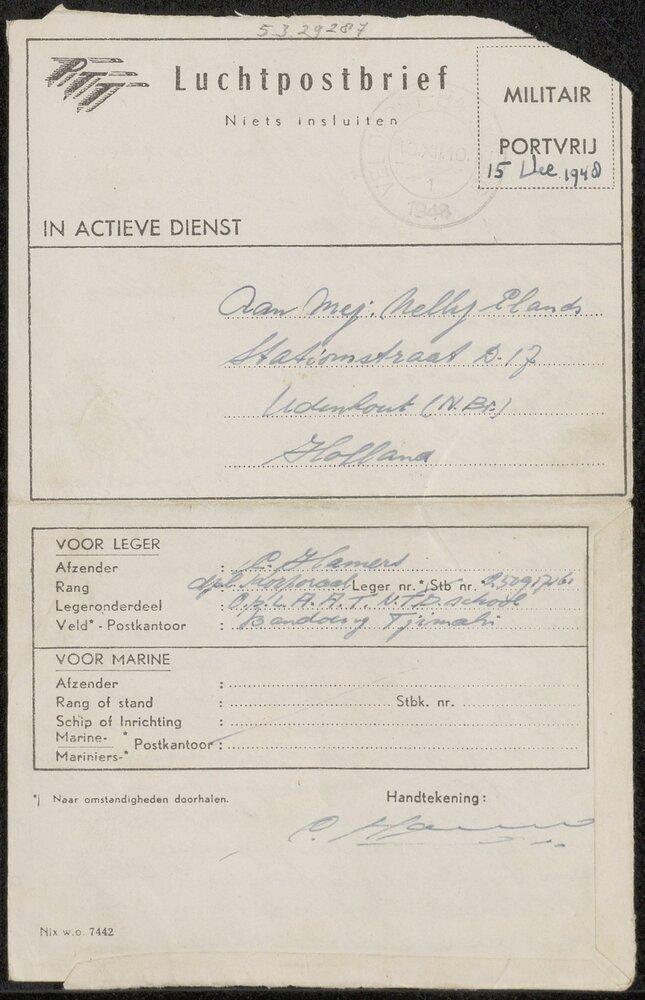 5 3 29287
PTT
Luchtpostbrief
Niets insluiten
MILITAIR
PORTVRIJ
15 Dec 1948
1948
IN ACTIEVE DIENST
Aan Mej. Nelly Elands
Stationstraat D. 17
Udenhout (N.Br.)
Holland
VOOR LEGER
Afzender : C. Hamers
Rang dpl. Korporaal Leger nr.* Stb nr.
Legeronderdeel : L.A.A.T. school
Veld* - Postkantoor : Bandoeng Tjimahi
VOOR MARINE
Afzender :
Rang of stand : Stbk. nr.
Schip of Inrichting :
Marine- * Postkantoor :
Mariniers-*
*) Naar omstandigheden doorhalen.
Handtekening:
C. Hamers
Nix w.o. 7442